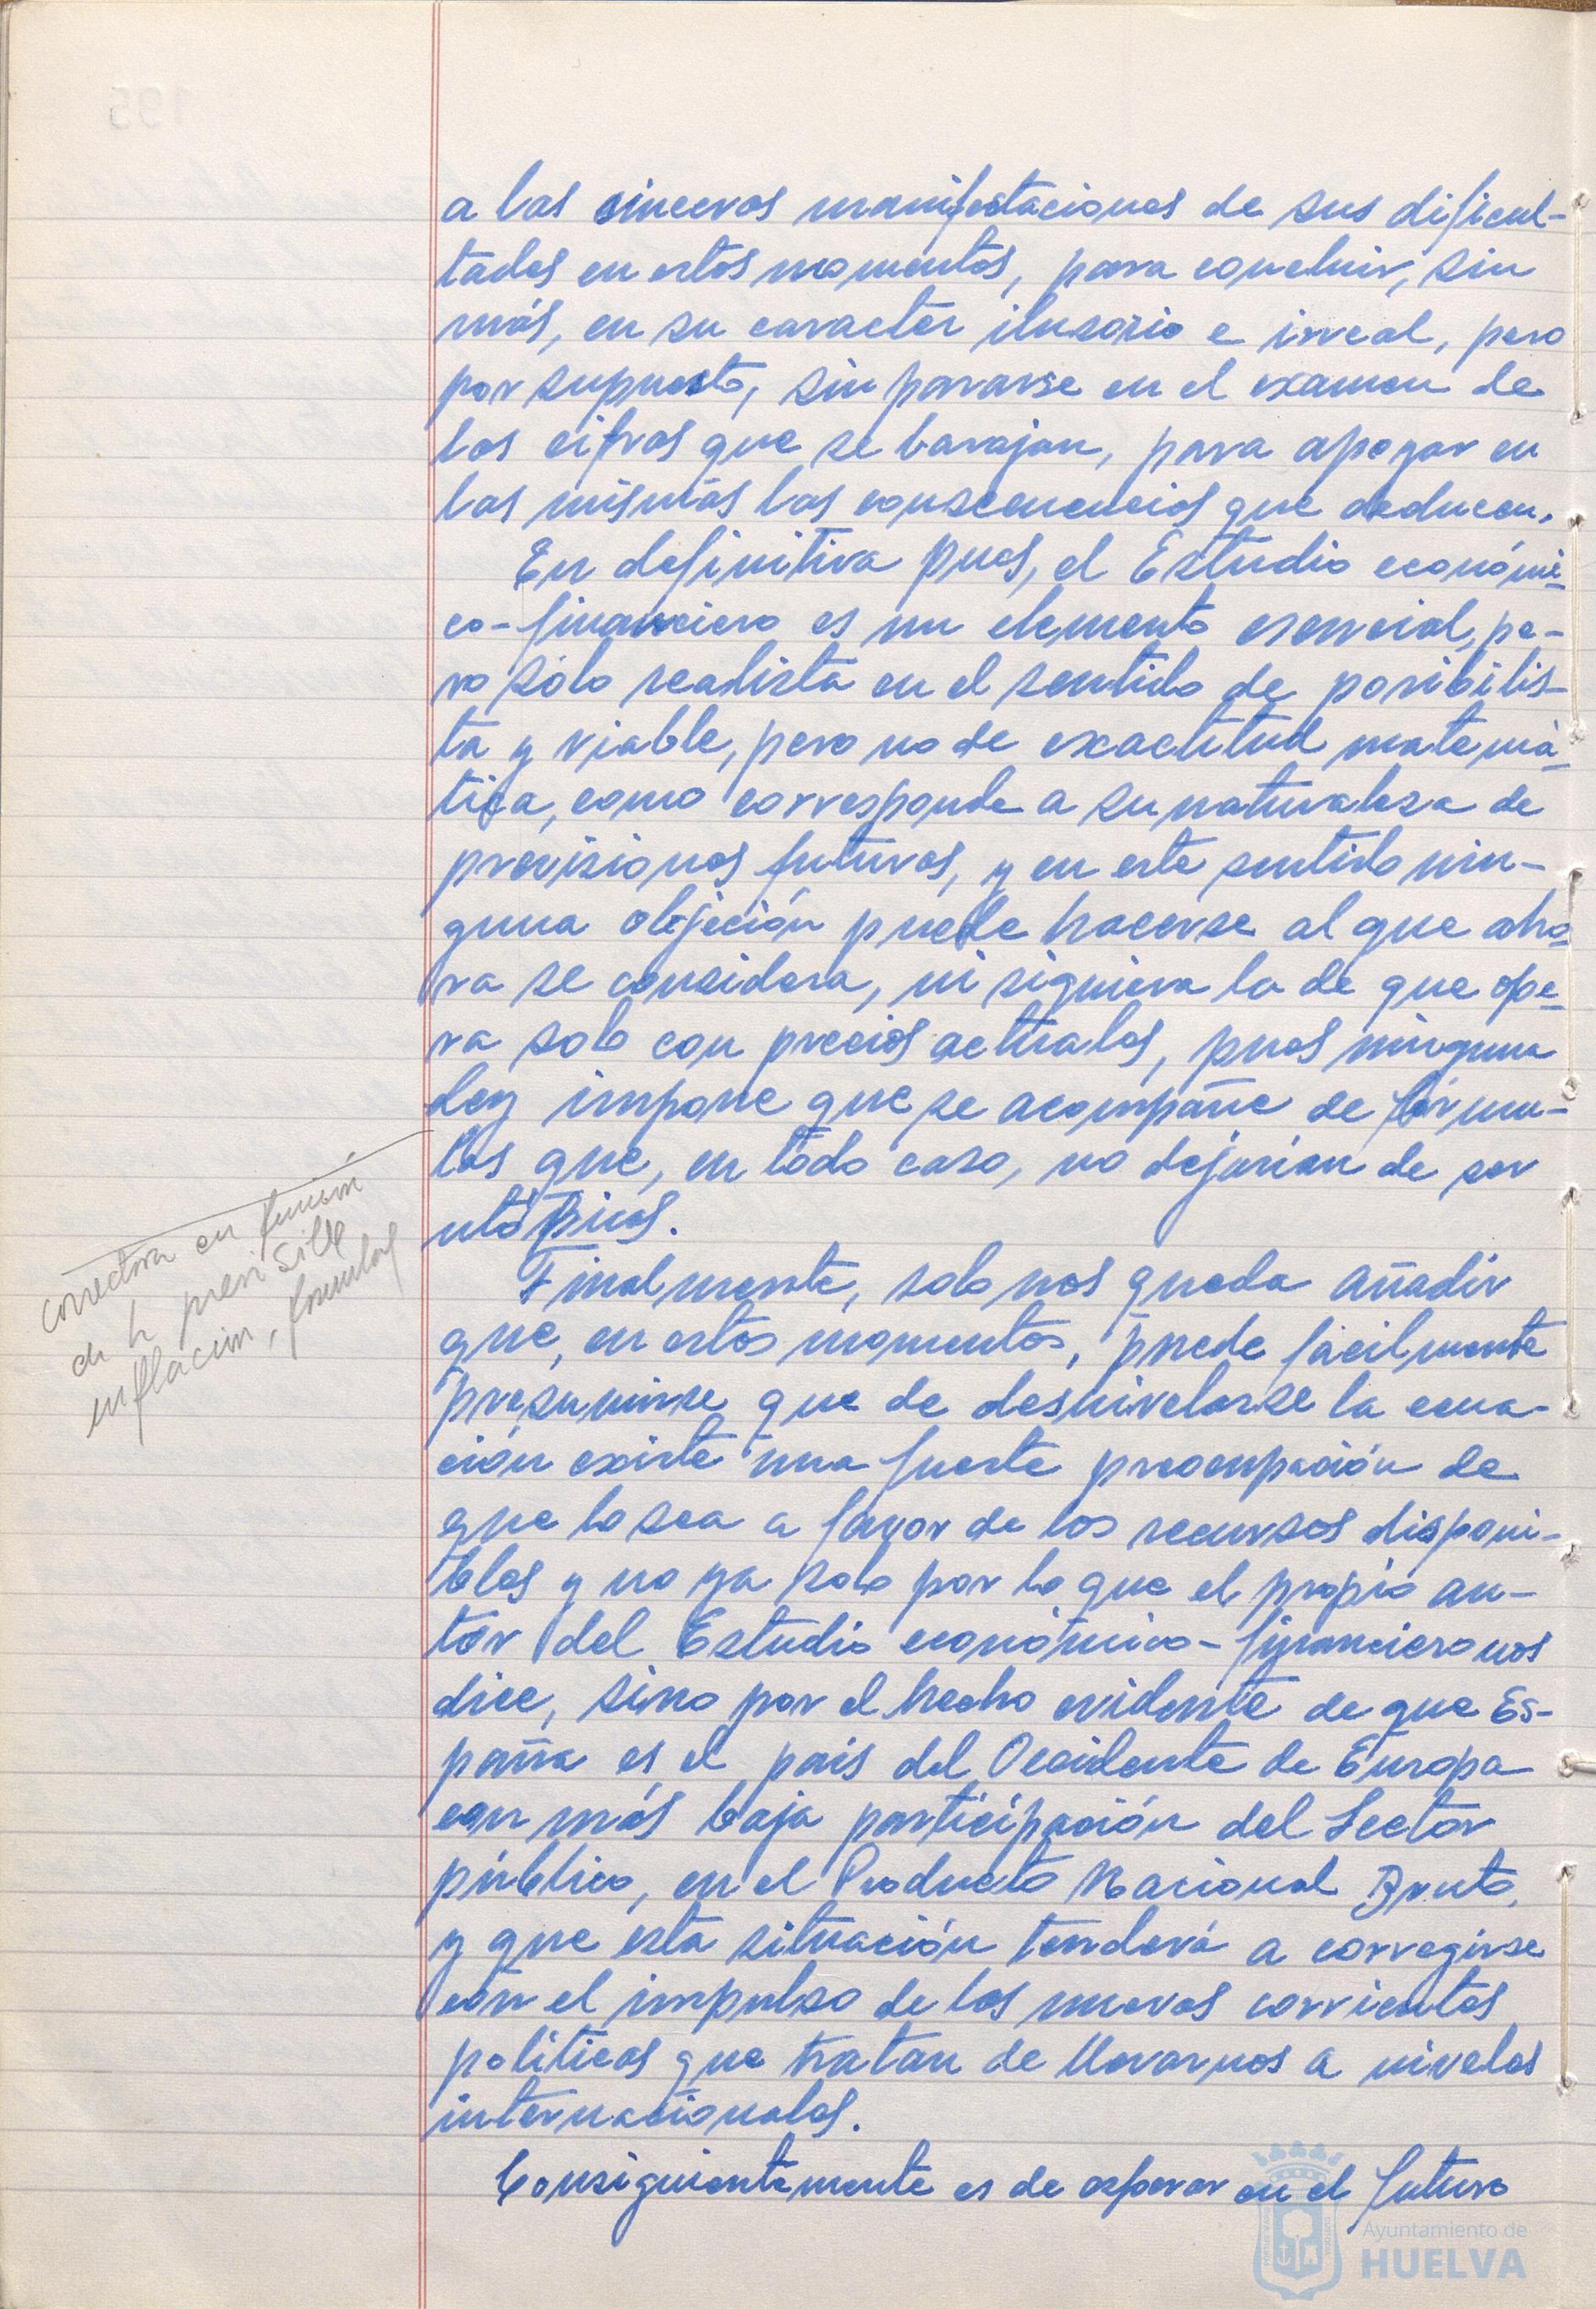 a las sinceras manifestaciones de sus dificul-
tades en estos momentos, para concluir, sin
más, en su caracter ilusorio e irreal, pero
por supuesto, sin pararse en el examen de
las cifras que se barajan, para apoyar en
las mismas las consecuencias que deducen.
En definitiva pues, el Estudio económi-
co-financiero es un elemento esencial, pe-
ro sólo realista en el sentido de posibilis-
ta y viable, pero no de exactitud matemá-
tica, como corresponde a su naturaleza de
previsiones futuras, y en este sentido nin-
guna objeción puede hacerse al que aho-
ra se considera, ni siquiera la de que ope-
ra solo con precios actuales, pues ninguna
Ley impone que se acompañe de fórmu-
las que, en todo caso, no dejarían de ser
utópicas.
correctora en función
de la previsible
inflación, fórmulas
Finalmente, solo nos queda añadir
que, en estos momentos, puede fácilmente
presumirse que de desnivelarse la ecua-
ción existe una fuerte preocupación de
que lo sea a favor de los recursos disponi-
bles y no ya solo por lo que el propio au-
tor del Estudio económico-financiero nos
dice, sino por el hecho evidente de que Es-
paña es el país del Occidente de Europa
con más baja participación del Sector
público, en el Producto Nacional Bruto,
y que esta situación tenderá a corregirse
con el impulso de las nuevas corrientes
políticas que tratan de llevarnos a niveles
internacionales.
Consiguientemente es de esperar en el futuro
Ayuntamiento de
HUELVA